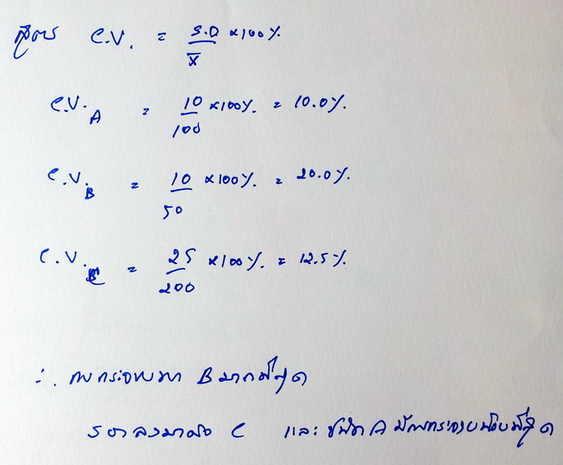 สูตร C.V. = S.D × 100%
X̄
C.V. A = 10 × 100% = 10.0%
100
C.V. B = 10 × 100% = 20.0%
50
C.V. C = 25 × 100% = 12.5%
200
∴ การกระจาย B มากที่สุด
รองลงมาคือ C และ ชนิด A มีการกระจายน้อยที่สุด